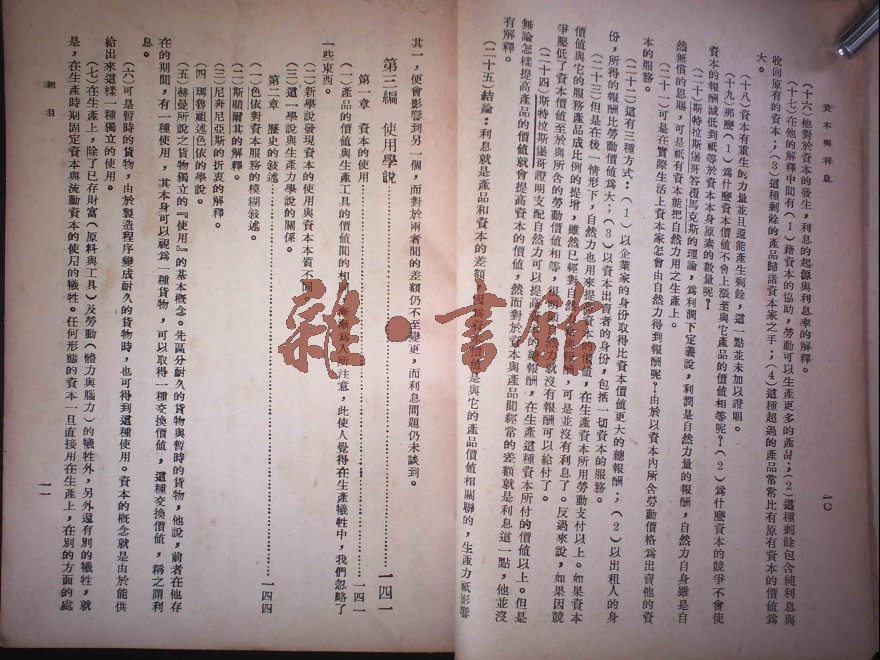 資本與利息
一〇
(十六)他對於資本的發生,利息的起源與利息率的解釋。
(十七)在他的解釋中間有(1)藉資本的協助,勞動可以生產更多的產品;(2)這種剩餘包含純利息與
收回原有的資本;(3)這種剩餘的產品歸諸資本家之手;(4)這種超過的產品常常比有原有資本的價值爲
大。
(十八)資本有重生的力量並且還能產生剩餘,這一點並未加以證明。
(十九)那麼(1)爲什麼資本價值不會上漲至與它產品的價值相等呢?(2)爲什麼資本的競爭不會使
資本的報酬減低到祇等於資本本身原素的數量呢?
(二十)斯特拉斯堡哥答覆馬克斯的理論,爲利潤下定義說,利潤是自然力量的報酬,自然力自身雖是自
然無償的恩賜,可是祇有資本能把自然力用之生產上。
(二十一)可是在實際生活上資本家怎會由自然力得到報酬呢?由於以資本內所含勞動價格爲出賣他的資
本的服務。
(二十二)這還有三種方式:(1)以企業家的身份取得比資本價值更大的總報酬;(2)以出租人的身
份,所得的報酬比勞動價值爲大;(3)以資本出賣者的身份,包括一切資本的服務。
(二十三)但是在後一情形下,自然力也用來提高資本的價值,在生產資本所用勞動支付以上。如果資本
價值與它的服務產品成比例的提增,雖然已經對自然力給與報酬,可是並沒有利息了。反過來說,如果因競
爭壓低了資本價值至於與所含的勞動價值相等,很明白自然力就沒有報酬可以給付了。
(二十四)斯特拉斯堡哥證明支配自然力可以提高資本的總報酬,在生產這種資本所付的價值以上。但是
無論怎樣提高產品的價值就會提高資本的價值,然而對於資本與產品間經常的差額就是利息這一點,他並沒
有解釋。
(二十五)結論:利息就是產品和資本的差額,因爲資本價值是與它的產品價值相關聯的,生產力祇影響
其一,便會影響到另一個,而對於兩者間的差額仍不至變更,而利息問題仍未談到。
第三編 使用學說……一四一
第一章 資本的使用……一四一
(一)產品的價值與生產工具的價值間的相別漸漸爲人所注意,此使人覺得在生產犧牲中,我們忽略了
一些東西。
(二)新學說發現資本的使用與資本本質不同。
(三)這一學說與生產力學說的關係。
第二章 歷史的敍述……一四四
(一)色依對資本服務的模糊敍述。
(二)斯頓爾其的解釋。
(三)尼奔尼亞斯的折衷的解釋。
(四)瑪魯祖述色依的學說。
(五)赫曼所說之貨物獨立的『使用』的基本概念。先區分耐久的貨物與暫時的貨物,他說,前者在他存
在的期間,有一種使用,其本身可以視爲一種貨物,可以取得一種交換價值,這種交換價值,稱之謂利
息。
(六)可是暫時的貨物,由於製造程序變成耐久的貨物時,也可得到這種使用。資本的概念就是由於能供
給出來這樣一種獨立的使用。
(七)在生產上,除了已存財富(原料與工具)及勞動(體力與腦力)的犧牲外,另外還有別的犧牲,就
是,在生產時期固定資本與流動資本的使用的犧牲。任何形態的資本一旦直接用在生產上,在別的方面的處
細目
一一
雜·書·館